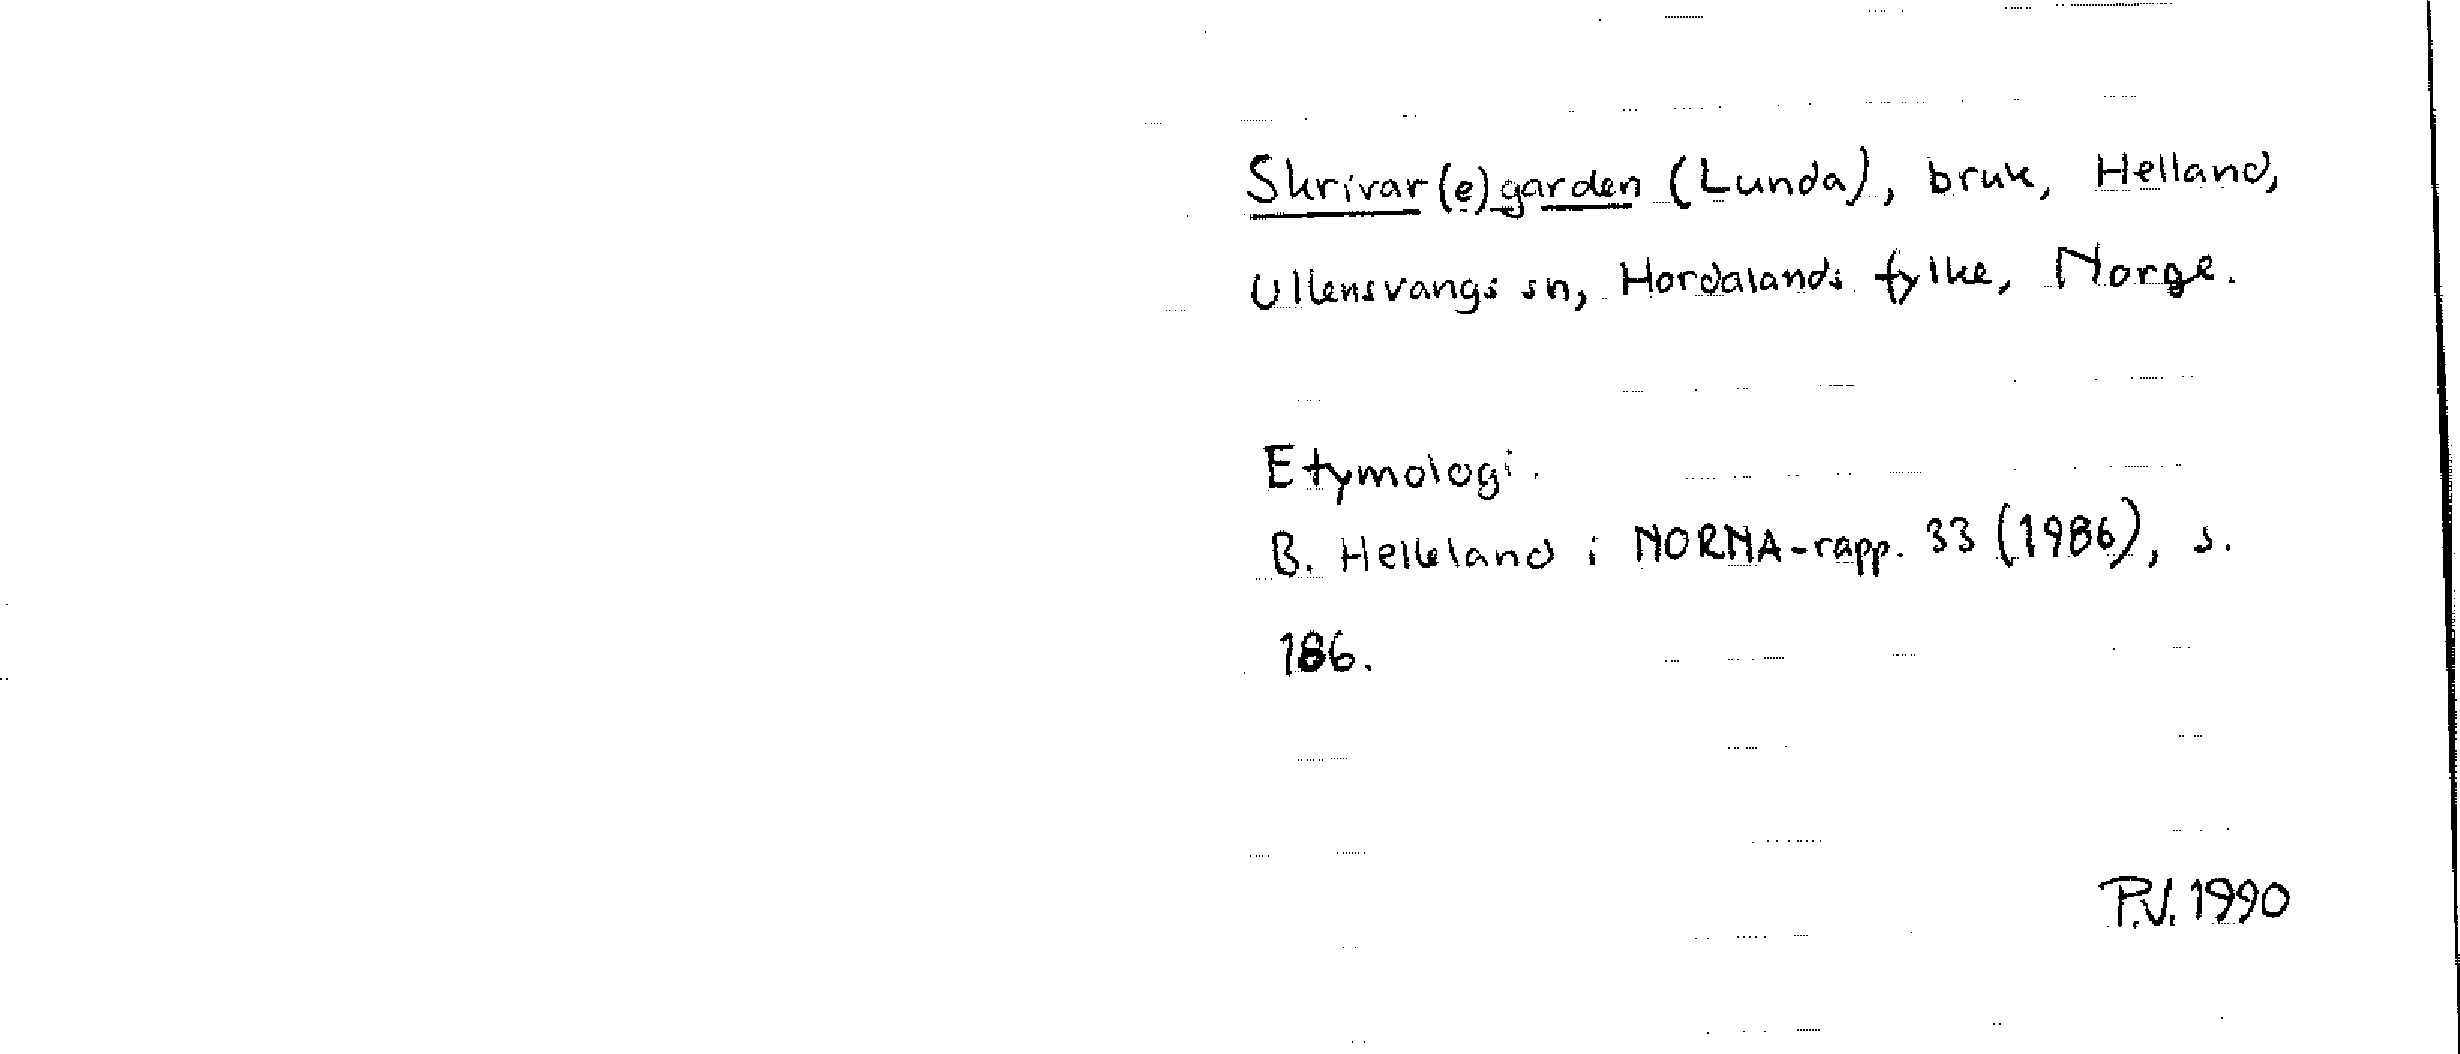 Skrivar(e)garden (Lunda), bruk, Helland,
Ullensvangs sn, Hordalands fylke, Norge.
Etymologi.
B. Helleland i NORNA-rapp. 33 (1986), s.
186.
P.V. 1990